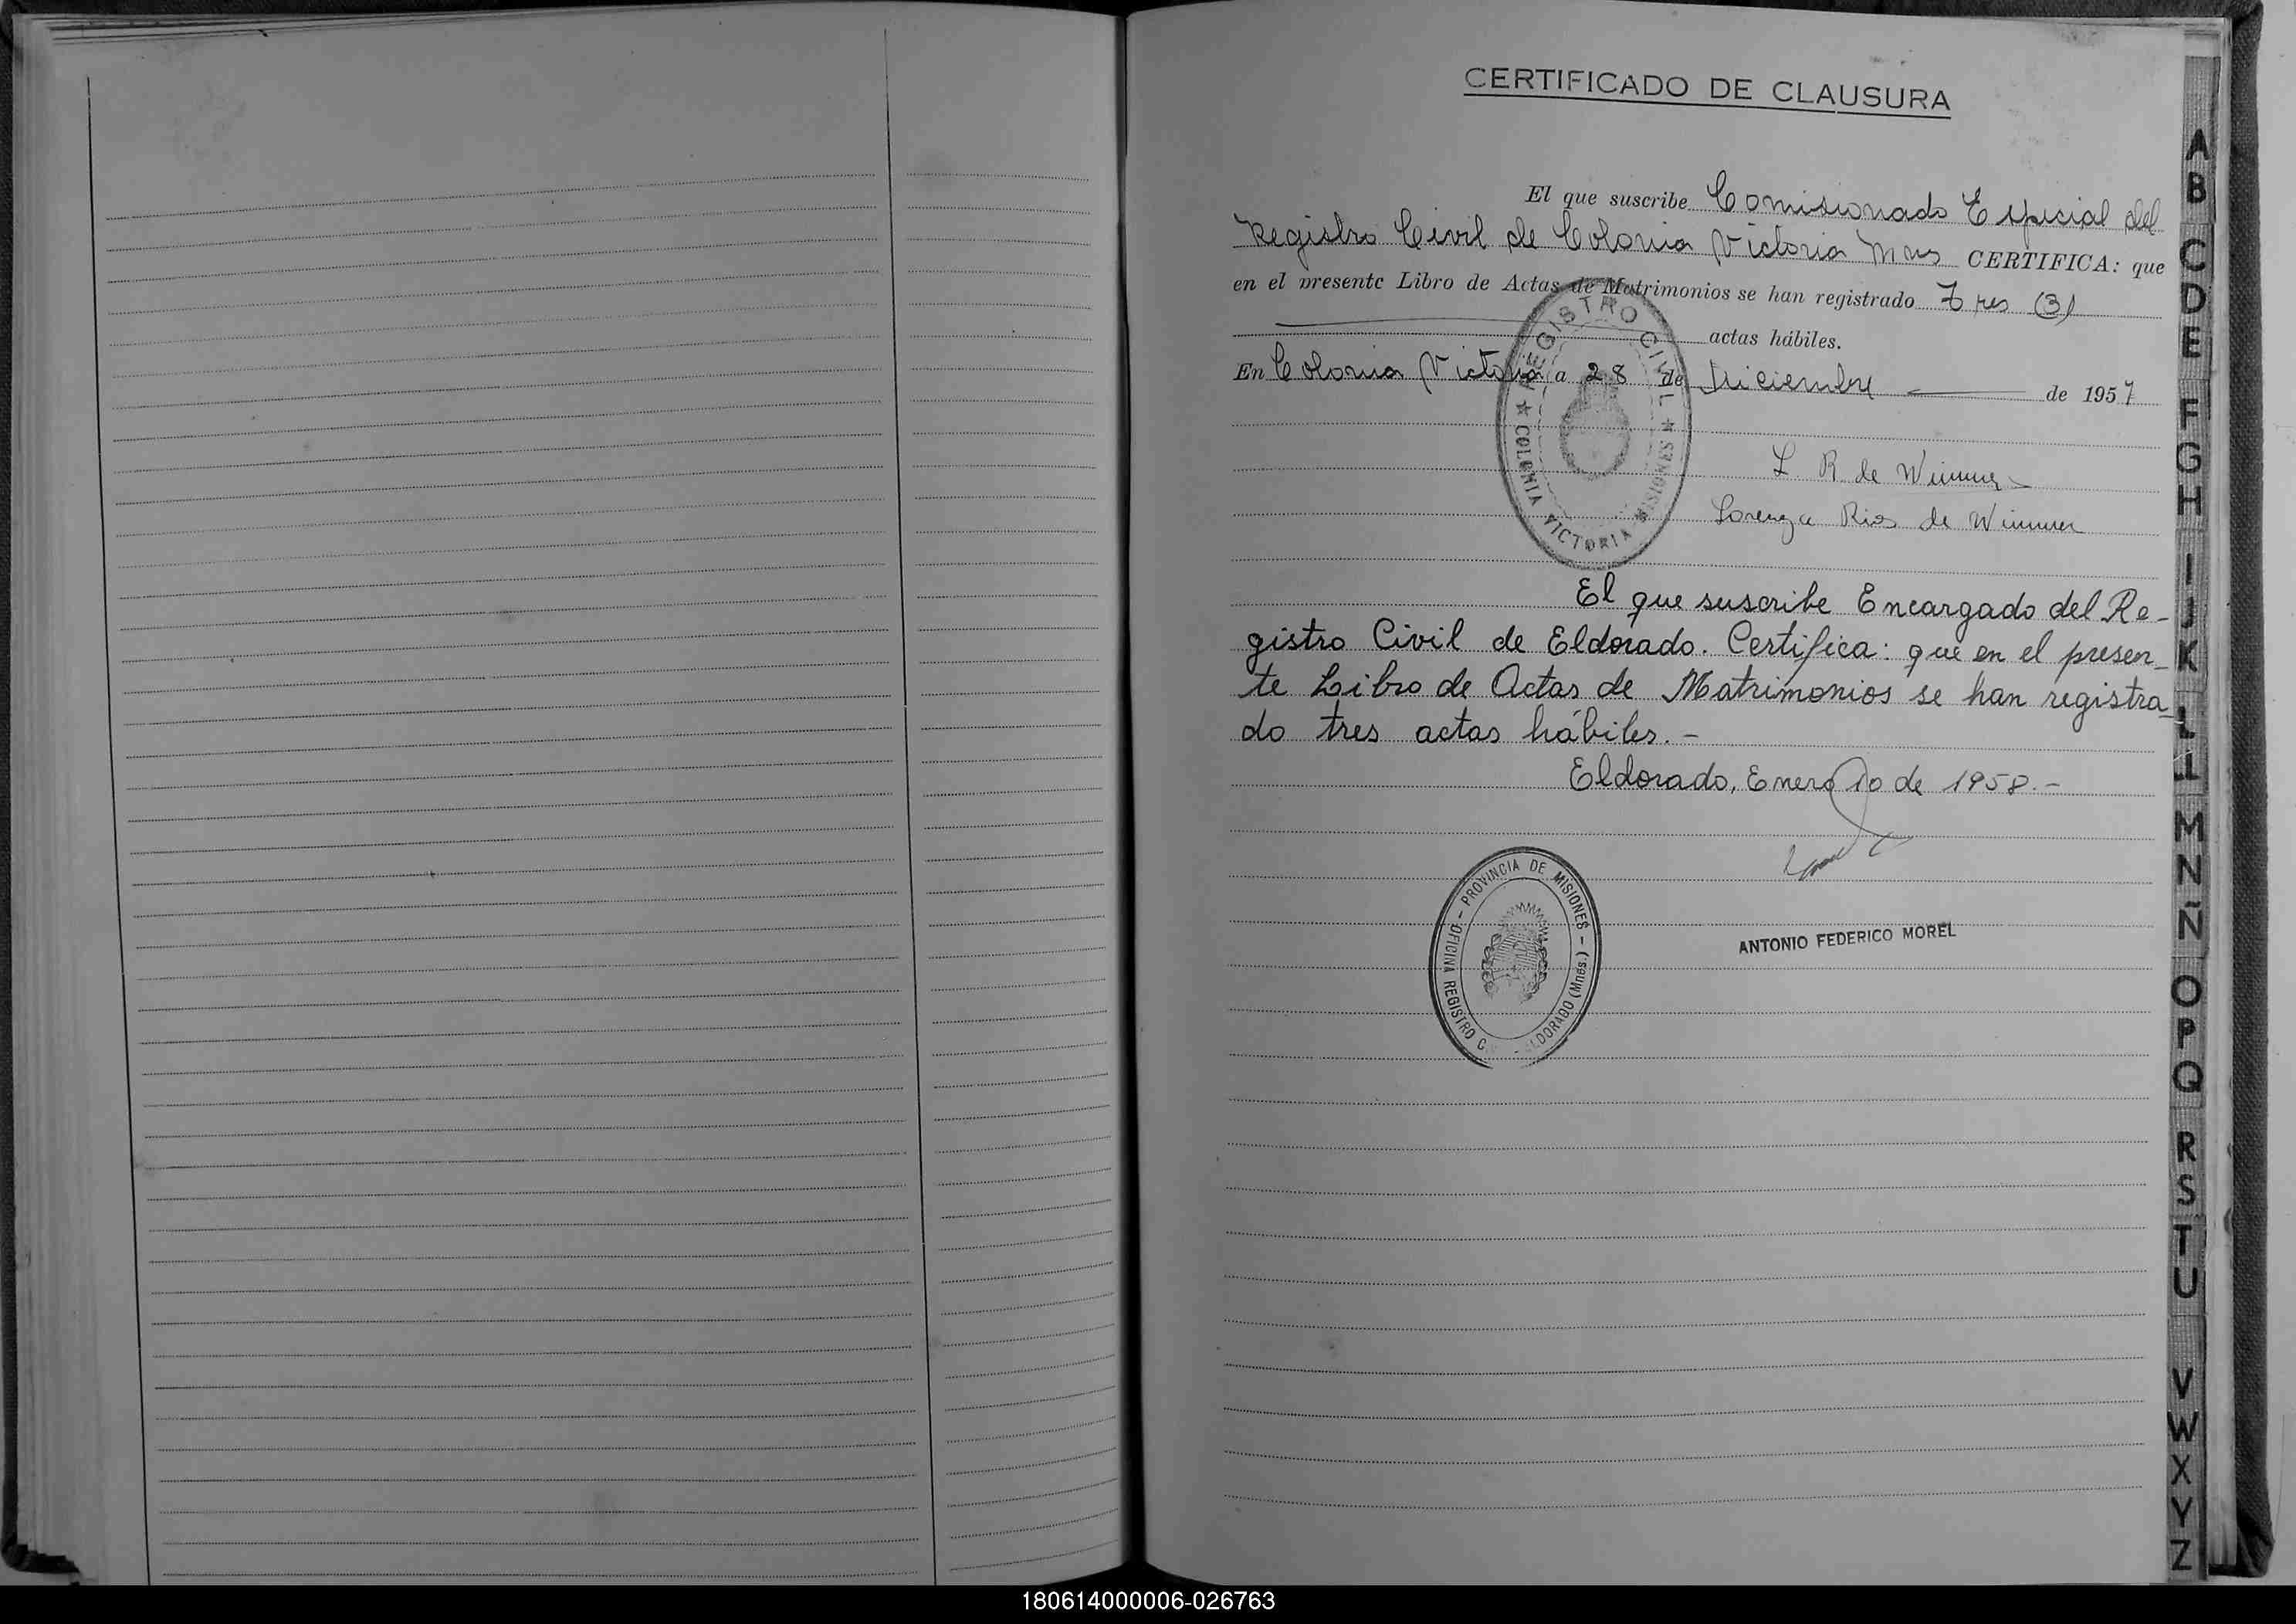 CERTIFICADO DE CLAUSURA
El que suscribe Comisionado Especial del
Registro Civil de Colonia Victoria Mnes CERTIFICA: que
en el presente Libro de Actas de Matrimonios se han registrado Tres (3)
actas hábiles.
En Colonia Victoria a 28 de Diciembre de 1957
REGISTRO CIVIL
★ COLONIA VICTORIA MISIONES ★
L. R. de Wimmer
Lorenza Rios de Wimmer
El que suscribe Encargado del Re-
gistro Civil de Eldorado. Certifica: que en el presen-
te Libro de Actas de Matrimonios se han registra-
do tres actas hábiles.-
Eldorado, Enero 10 de 1958.-
PROVINCIA DE MISIONES -
OFICINA REGISTRO C - ELDORADO (Mnes.)
ANTONIO FEDERICO MOREL
A
B
C
D
E
F
G
H
I
J
K
L
LL
M
N
Ñ
O
P
Q
R
S
T
U
V
W
X
Y
Z
180614000006-026763